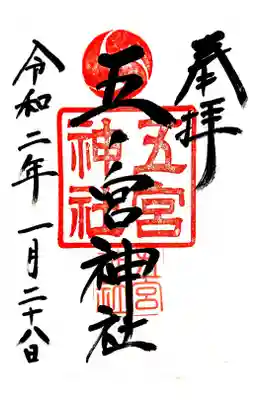 奉拝
五宮神社
五宮
神社
令和二年一月二十八日